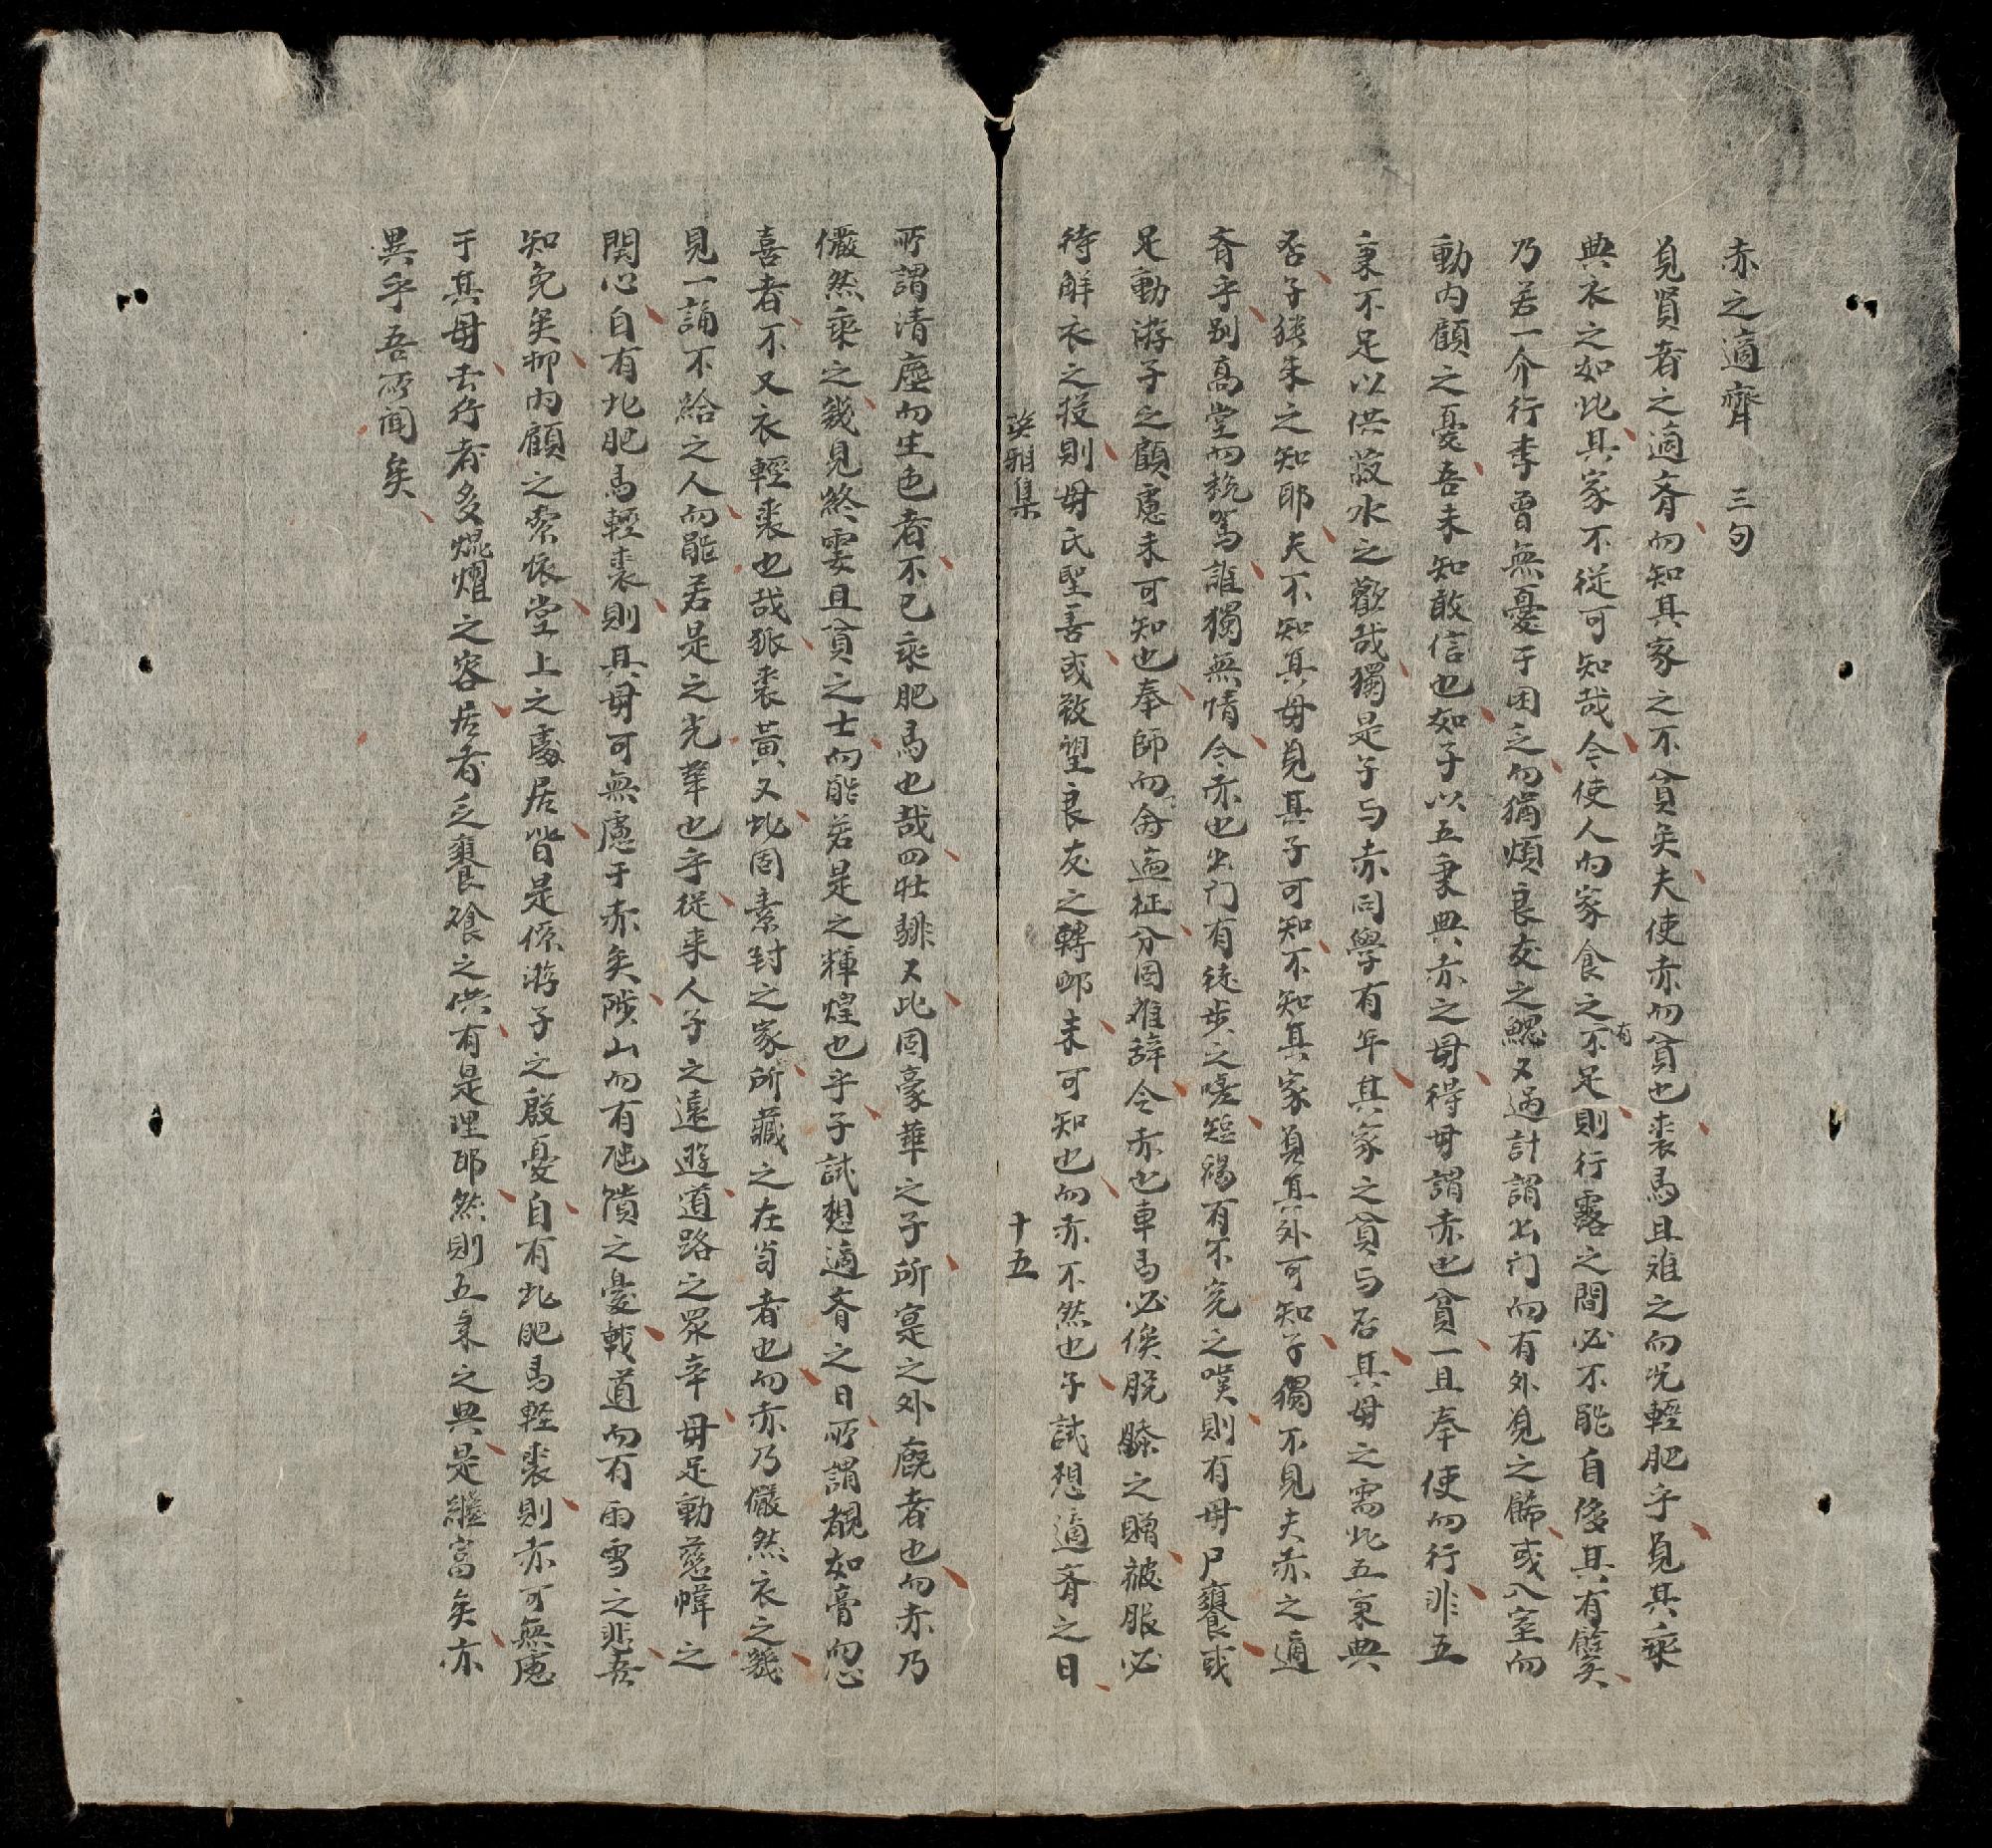 赤之適齊 三句
見賢者之適斉而知其家之不貧矣夫使赤而貧也裘馬且难之而况輕肥乎見其乘
與衣之如此其家不従可知哉今使人而家食之有不足則行露之間必不能自侈其有餘矣
乃若一介行李曾無憂于困乏而猶煩良友之鰓又過計謂出门而有外見之餙或入室而
動内顧之憂吾未知敢信也如子以五秉與赤之母得毋謂赤也貧一旦奉使而行非五
秉不足以供菽水之歡哉獨是子与赤同學有年其家之貧与否其母之需此五秉與
否子獲未之知耶夫不知其母見其子可知不知其家負其外可知子獨不見夫赤之適
斉乎别高堂而孰篤誰獨無情令赤也出门有徒步之嗟短褐有不完之嘆則有母尸饔或
足動游子之顧慮未可知也奉師而命遄征分固难辞令赤也車馬必俟脱驂之贈被服必
待解衣之投則母氏聖善或致望良友之轉卹未可知也而赤不然也子試想適斉之日
英雅集 十五
所謂清塵而生色者不已乘肥馬也哉四牡騑又此固豪華之子所寔之外廐者也而赤乃
儼然乘之幾見終窶且貧之士而能若是之輝煌也乎子試想適斉之日所謂覩如膏而心
喜者不又衣輕裘也哉狐裘黃又此固素封之家所藏之在笥者也而赤乃儼然衣之幾
見一誦不給之人而能若是之光華也乎從来人子之遠遊道路之眾辛母足動慈幃之
関心自有此肥馬輕裘則其母可無慮于赤矣陟山而有虺隤之憂載道而有雨雪之悲吾
知免矣抑内顧之索懐堂上之處居皆是係游子之殷憂自有此肥馬輕裘則赤可無慮
于其母去行者多焜燿之容居者乏饔飧之供有是理耶然則五秉之與是繼富矣亦
異乎吾所闻矣